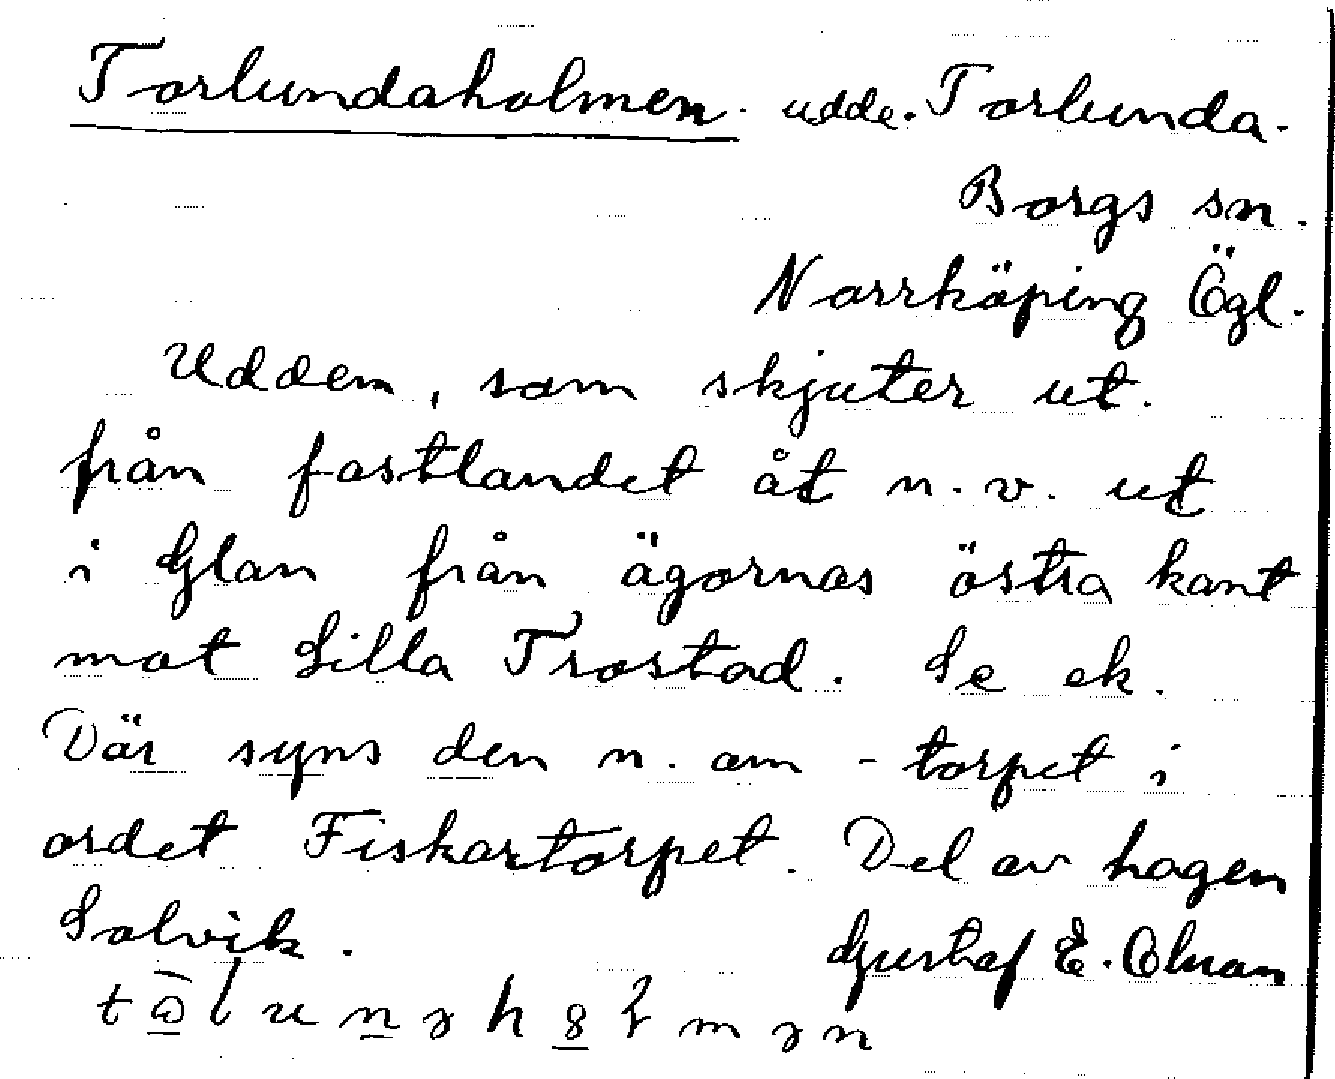 Torlundaholmen. udde. Torlunda.
Borgs sn.
Norrköping Ögl.
Udden, som skjuter ut
från fastlandet åt n.v. ut
i Glan från ägornas östra kant
mot Lilla Trostad. Se ek.
Där syns den n. om -torpet i
ordet Fiskartorpet. Del av hagen
Solvik.
Gustaf E.